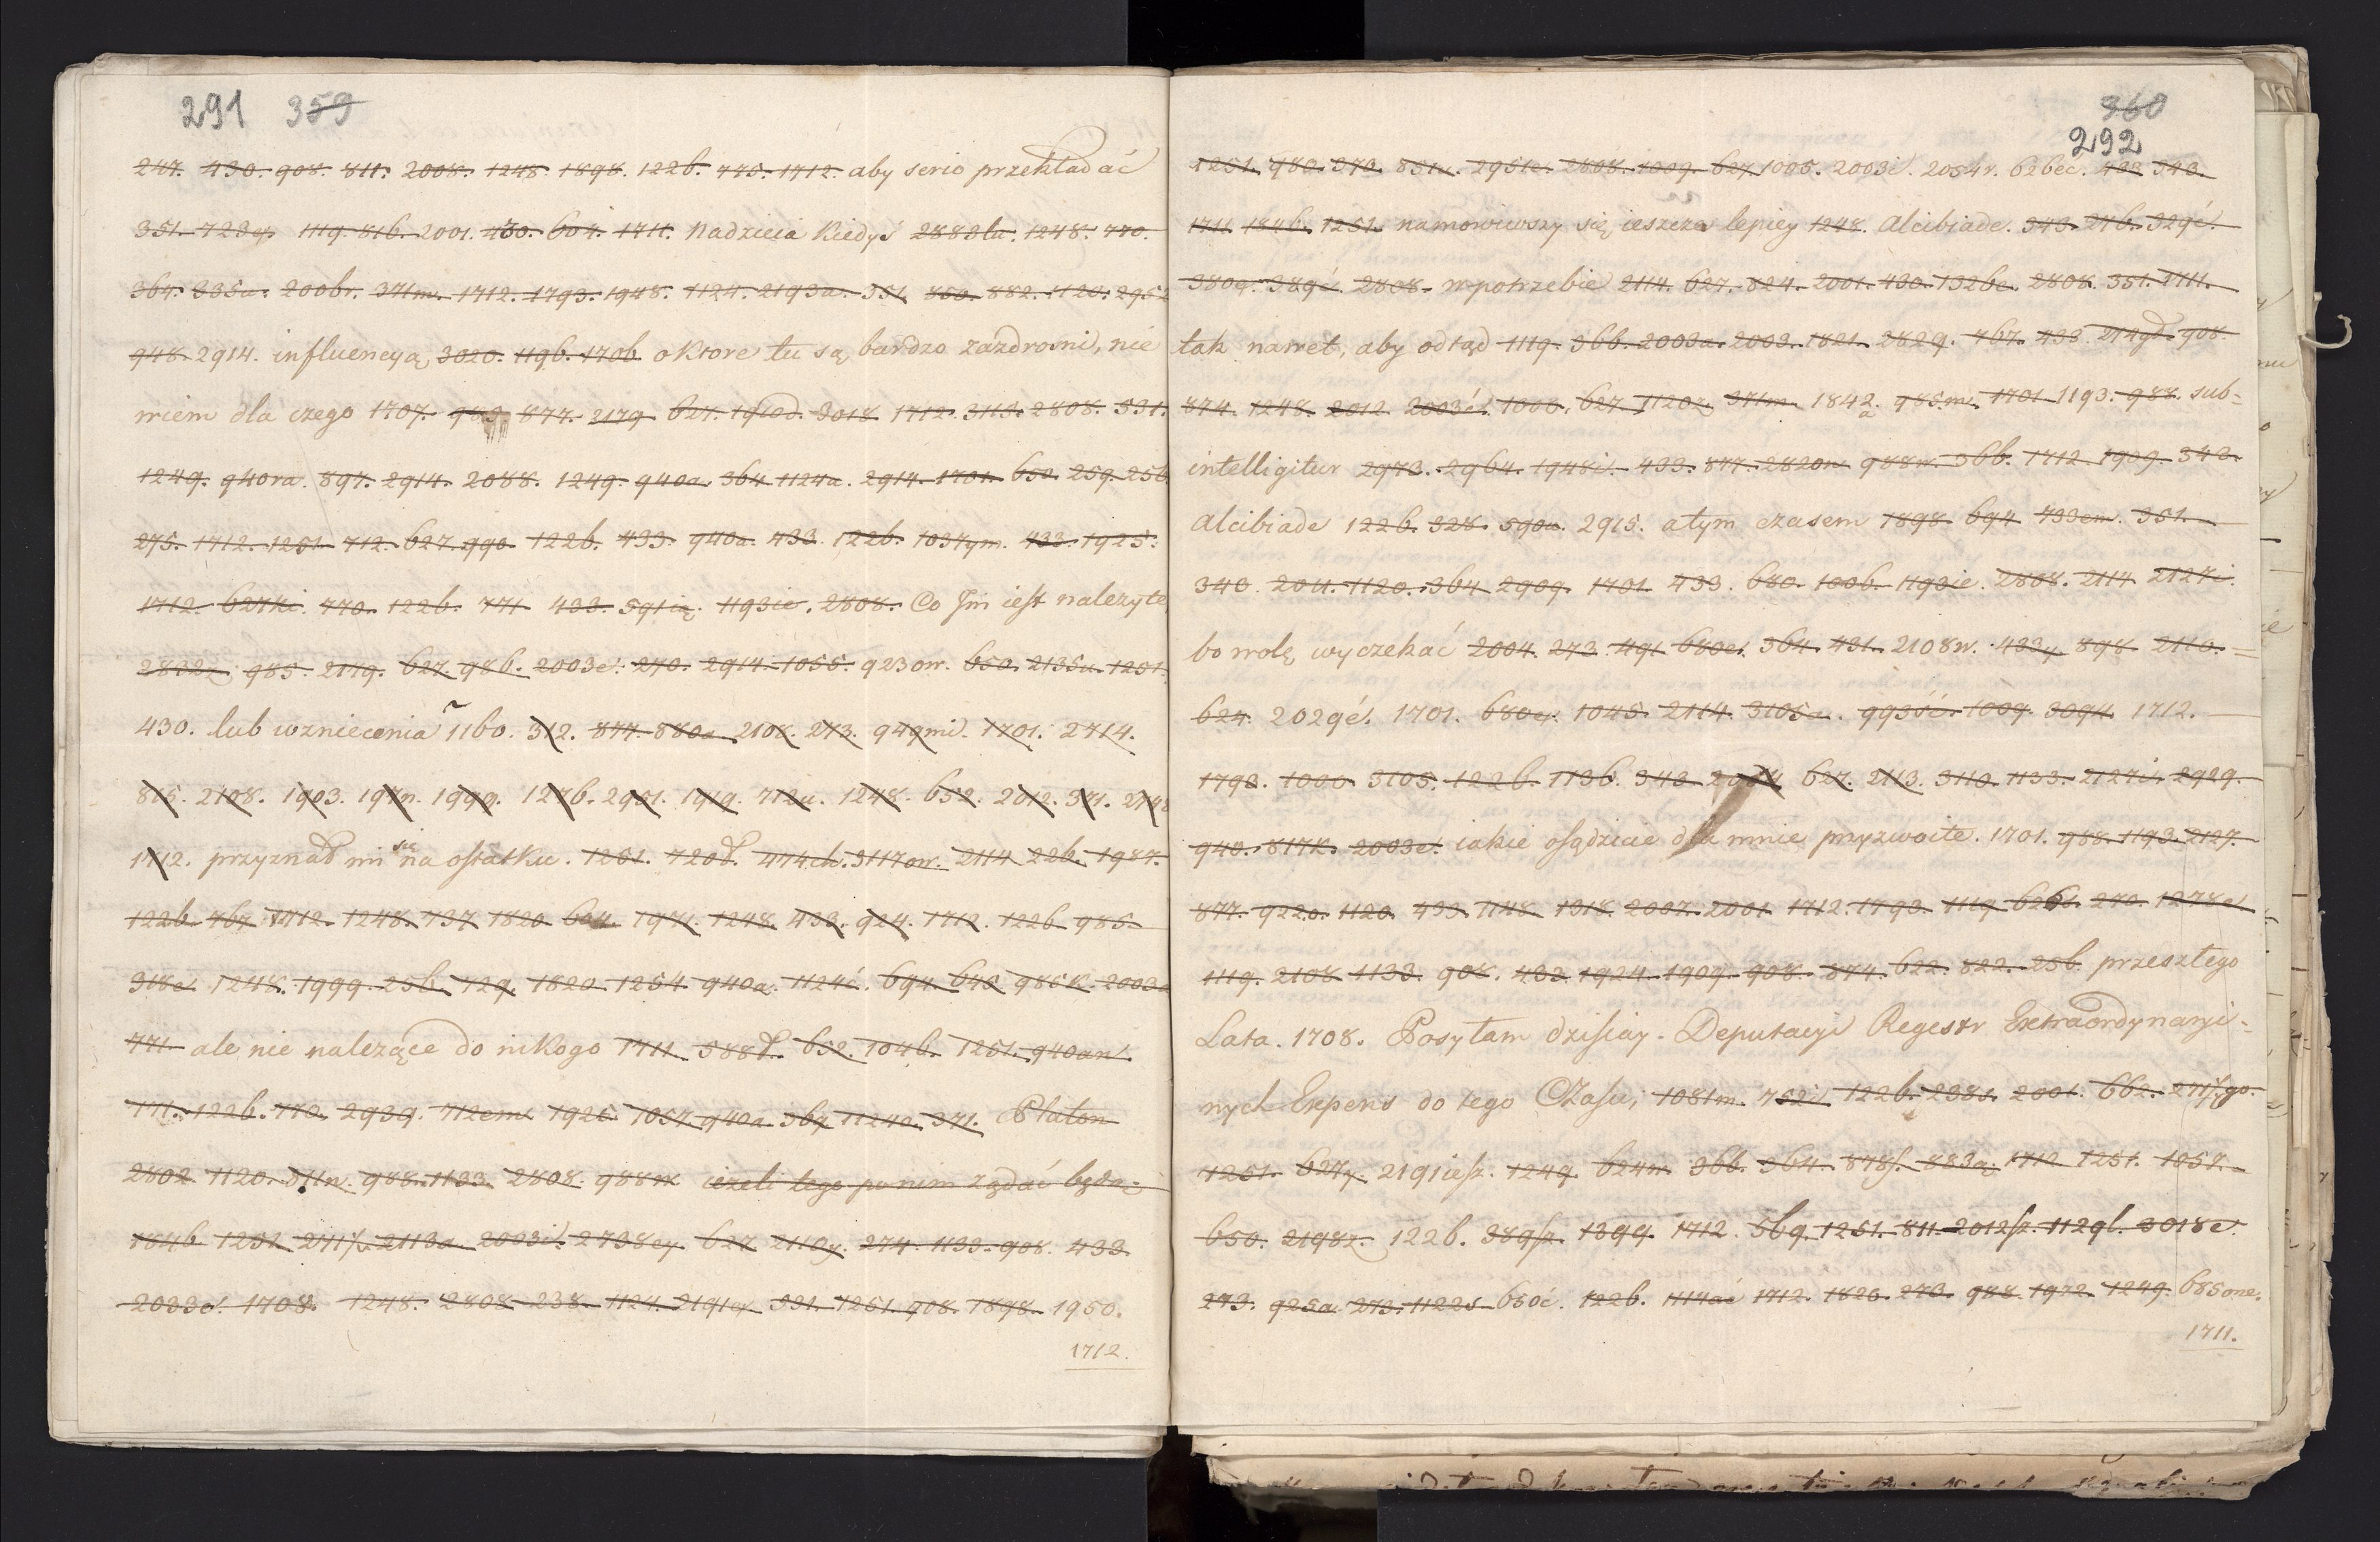 291 359
247. 430. 908. 811. 2008. 1248. 1898. 1226. 775. 1712. aby serio przekładać
351. 723ey. 1119. 816. 2001. 430. 604. 1711. Nadzieia kiedyś 2883lu. 1248. 770.
364. 335a. 2006r. 371m. 1712. 1793. 1948. 1124. 2193a. 351. 850. 882. 1120. 2952
948. 2914. influencyą, 3020. 1196. 1706. oktore tu są bardzo zazdrosni, nie
wiem dla czego 1707. 983. 874. 2179. 627. 1910d. 3018. 1712. 3113. 2808. 331.
1249. 940ra. 897. 2914. 2088. 1249. 940a. 364. 1124a. 2914. 1701. 650. 259. 256.
275. 1712. 1251. 712. 627. 990. 1226. 433. 940a. 433. 1226. 1037ym. 433. 1925.
1712. 627ki. 770. 1226. 771. 433. 591ią. 1193ie. 2808. Co Jm iest nalezyte
2832z. 985. 2179. 627. 986. 2003e. 270. 2914. 1055. 923ow. 650. 2135u. 1251.
430. lub wzniecenia 1160. 312. 877. 880a. 2108. 273. 949mi. 1701. 2714.
815. 2108. 1903. 197n. 1999. 1276. 2951. 1919. 712u. 1248. 652. 2012. 371. 2748
1712. przyznał mi się na ostatku. 1251. 720ł. 474ch. 3117ow. 2114. 226. 1987.
1226. 767. 1712. 1248. 737. 1820. 604. 1971. 1248. 433. 924. 1712. 1226. 985.
318e. 1248. 1999. 256. 729. 1820. 1254. 940a. 1124ć. 694. 643. 985K. 2003a
771. ale nie nalezące do nikogo 1711. 588ł. 652. 1046. 1251. 940an.
171. 1226. 770. 2939. 712em. 1925. 1057. 940a. 367. 1124a. 371. Platon
2802. 1120. 311n. 988. 1133. 2808. 988m. iezeli tego po nim ządać będą
1846. 1251. 2113a. 2003i. 2738ey. 627. 2110y. 274. 1133. 908. 433.
2033e. 1708. 1248. 2808. 238. 1124. 2191ey. 331. 1251. 908. 1898. 1950.
1712.
360
292
1251. 980. 270. 851u. 2951e. 2808. 1009. 627. 1005. 2003i. 2054r. 626ec. 433. 340.
1711. 1846. 1251. namowiwszy się ieszcze lepiey 1248. Alcibiade. 343. 276. 329ć.
380ą. 389ć. 2808. wpotrzebie 2114. 627. 824. 2001. 430. 1326e. 2808. 351. 1711.
tak nawet, aby odtąd 1119. 366. 2003a. 2003. 1821. 2829. 767. 433. 908.
874. 1248. 2012. 2003ć. 1008. 627. 1120z. 371m. 1842a. 985m. 1701. 1193. 988. sub=
intelligitur 2973. 2964. 1948i. 433. 877. 2820n. 988w. 366. 1712. 1909. 343.
Alcibiade 1226. 328. 590u. 2915. atym czasem 1898. 694. 733em. 351.
340. 2011. 1120. 364. 2909. 1701. 433. 680. 1006. 1193ie. 2808. 2114. 2127i.
bo wolę wyczekać 2004. 273. 491. 680e. 364. 431. 2108w. 433y. 898. 2110. =
624. 2029ć. 1701. 680ey. 1045. 2114. 3105a. 993ść. 1009. 3094. 1712.
1793. 1000. 3105. 1226. 1136. 343. 627. 2113. 3110. 1133. 2127i. 2929.
940. 817K. 2003e. iakie osądzicie dla mnie przyzwoite. 1701. 988. 1193. 2127.
877. 922o. 1120. 433. 1148. 1318. 2007. 2001. 1712. 1793. 1119. 270. 1278e.
1119. 2108. 1133. 908. 433. 1924. 1909. 908. 874. 622. 822. 256. przeszłego
Lata. 1708. Posyłam dzisiay. Deputacyi Regestr Extraordynaryi=
nych Expens do tego Czasu, 1081m. 752i. 1226. 238s. 2001. 662.
1251. 627y. 2191iesz. 1249. 624n. 366. 364. 878s. 883ą. 1712. 1251. 1057.
650. 2198z. 1226. 389sz. 1399. 1712. 569. 1251. 811. 2012sz. 1129l. 3018e.
293. 925a. 273. 1122s. 650ć. 1226. 1114ać. 1712. 1826. 273. 988. 1972. 1249. 685one.
1711.